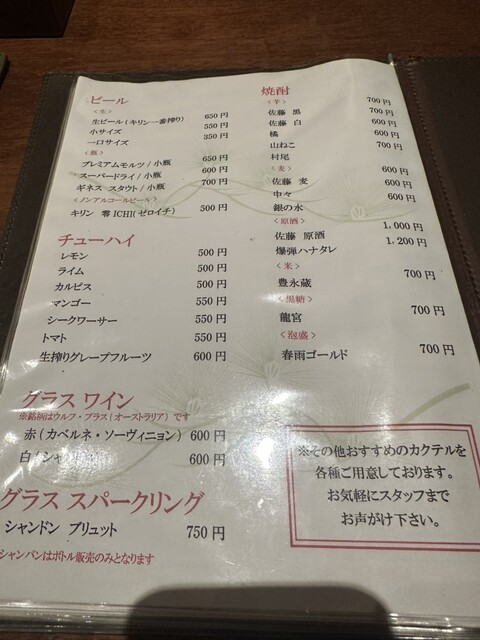 ビール
<生>
生ビール(キリン一番搾り) 650円
小サイズ 550円
一口サイズ 350円
<瓶>
プレミアムモルツ/小瓶 650円
スーパードライ/小瓶 600円
ギネス スタウト/小瓶 700円
<ノンアルコールビール>
キリン 零ICHI(ゼロイチ) 500円
チューハイ
レモン 500円
ライム 500円
カルピス 500円
マンゴー 550円
シークワーサー 550円
トマト 550円
生搾りグレープフルーツ 600円
グラス ワイン
※銘柄はウルフ・ブラス(オーストラリア)です
赤(カベルネ・ソーヴィニョン) 600円
白 600円
グラス スパークリング
シャンドン ブリュット 750円
シャンパンはボトル販売のみとなります
焼酎
<芋>
佐藤 黒 700円
佐藤 白 700円
橘 600円
山ねこ 600円
村尾 700円
<麦>
佐藤 麦 600円
中々 600円
銀の水 600円
<原酒>
佐藤 原酒 1,000円
爆弾ハナタレ 1,200円
<米>
豊永蔵 700円
<黒糖>
龍宮 700円
<泡盛>
春雨ゴールド 700円
※その他おすすめのカクテルを
各種ご用意しております。
お気軽にスタッフまで
お声がけ下さい。